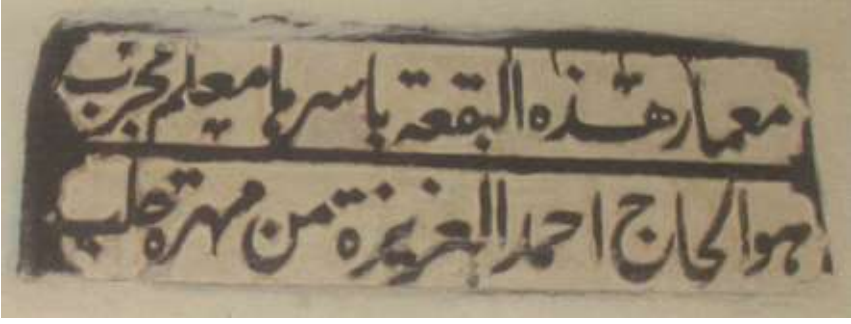 معمار هذه البقعة باسرها معلم مجرب
هو الحاج احمد العزيزة من مهرة حلب